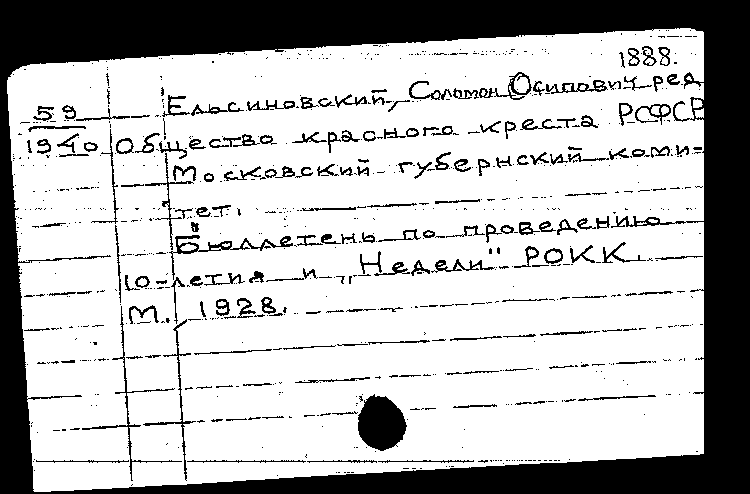 1888.
Ельсиновский, Соломон Осипович ред
59
1940 Общество красного креста РСФСР
Московский губернский коми-
тет.
Бюллетень по проведению
10-летия и „Недели" РОКК.
М., 1928.